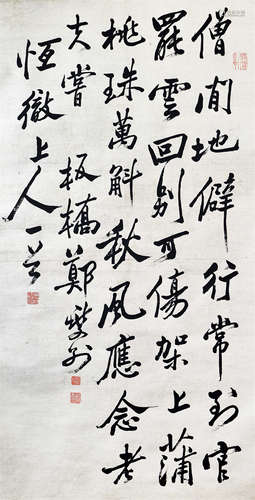 僧閒地僻行常到官
罷雲回別可傷架上蒲
桃珠萬斛秋風應念老
夫嘗 板橋鄭燮
恆徹上人一